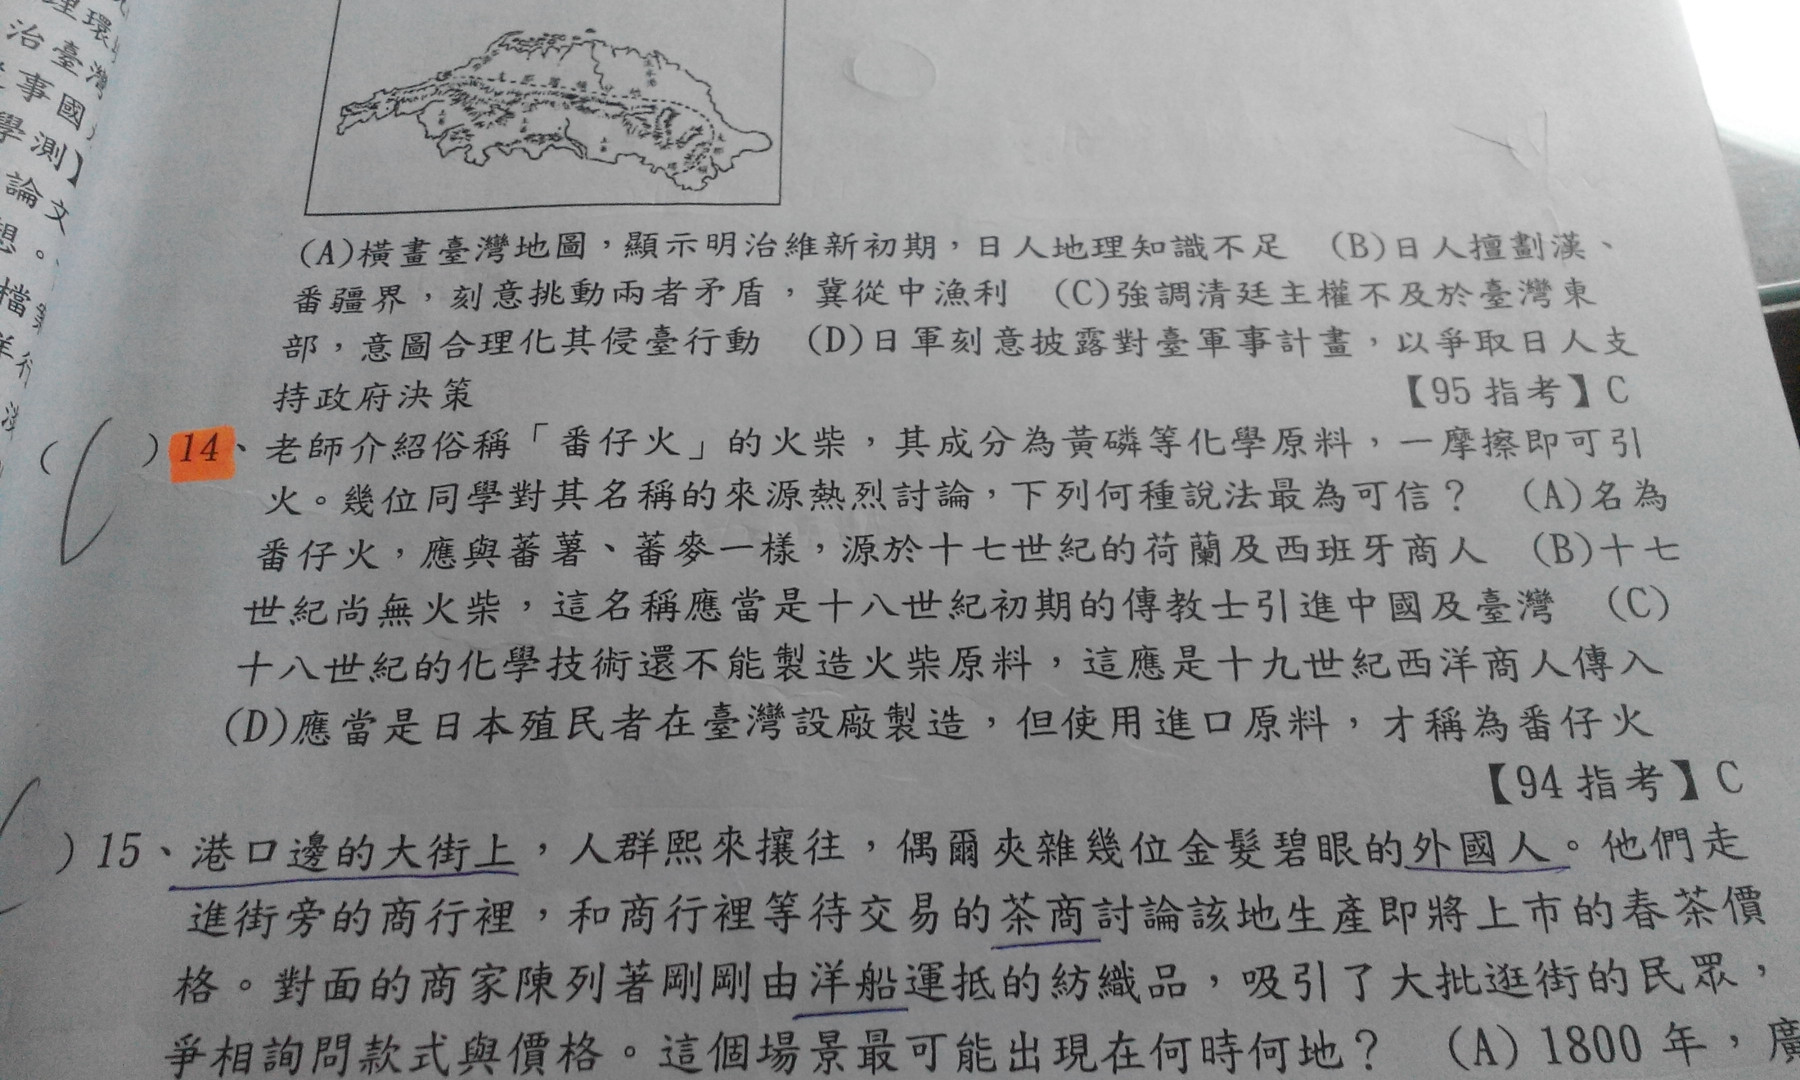 理環
治臺灣
事國
學測】
論文
想。
檔案
洋行
(A)橫畫臺灣地圖，顯示明治維新初期，日人地理知識不足　(B)日人擅劃漢、
番疆界，刻意挑動兩者矛盾，冀從中漁利　(C)強調清廷主權不及於臺灣東
部，意圖合理化其侵臺行動　(D)日軍刻意披露對臺軍事計畫，以爭取日人支
持政府決策　【95 指考】C
(　)14、老師介紹俗稱「番仔火」的火柴，其成分為黃磷等化學原料，一摩擦即可引
火。幾位同學對其名稱的來源熱烈討論，下列何種說法最為可信？　(A)名為
番仔火，應與蕃薯、蕃麥一樣，源於十七世紀的荷蘭及西班牙商人　(B)十七
世紀尚無火柴，這名稱應當是十八世紀初期的傳教士引進中國及臺灣　(C)
十八世紀的化學技術還不能製造火柴原料，這應是十九世紀西洋商人傳入
(D)應當是日本殖民者在臺灣設廠製造，但使用進口原料，才稱為番仔火
【94 指考】C
)15、港口邊的大街上，人群熙來攘往，偶爾夾雜幾位金髮碧眼的外國人。他們走
進街旁的商行裡，和商行裡等待交易的茶商討論該地生產即將上市的春茶價
格。對面的商家陳列著剛剛由洋船運抵的紡織品，吸引了大批逛街的民眾，
爭相詢問款式與價格。這個場景最可能出現在何時何地？　(A) 1800 年，廣